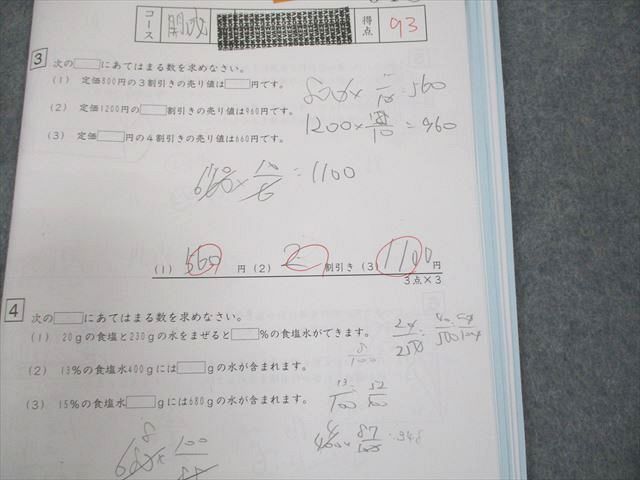 コース 開成 得点 93
3 次の□にあてはまる数を求めなさい。
(1) 定価800円の3割引きの売り値は□円です。
800× 7/10 = 560
(2) 定価1200円の□割引きの売り値は960円です。
1200× /10 = 960
(3) 定価□円の4割引きの売り値は660円です。
660× 10/6 = 1100
(1) 560 円 (2) 2 割引き (3) 1100 円
3点×3
4 次の□にあてはまる数を求めなさい。
(1) 20gの食塩と230gの水をまぜると□%の食塩水ができます。
8/100
(2) 13%の食塩水400gには□gの水が含まれます。
13/100
(3) 15%の食塩水□gには680gの水が含まれます。
400× 87/100 = 348
680× 100/85